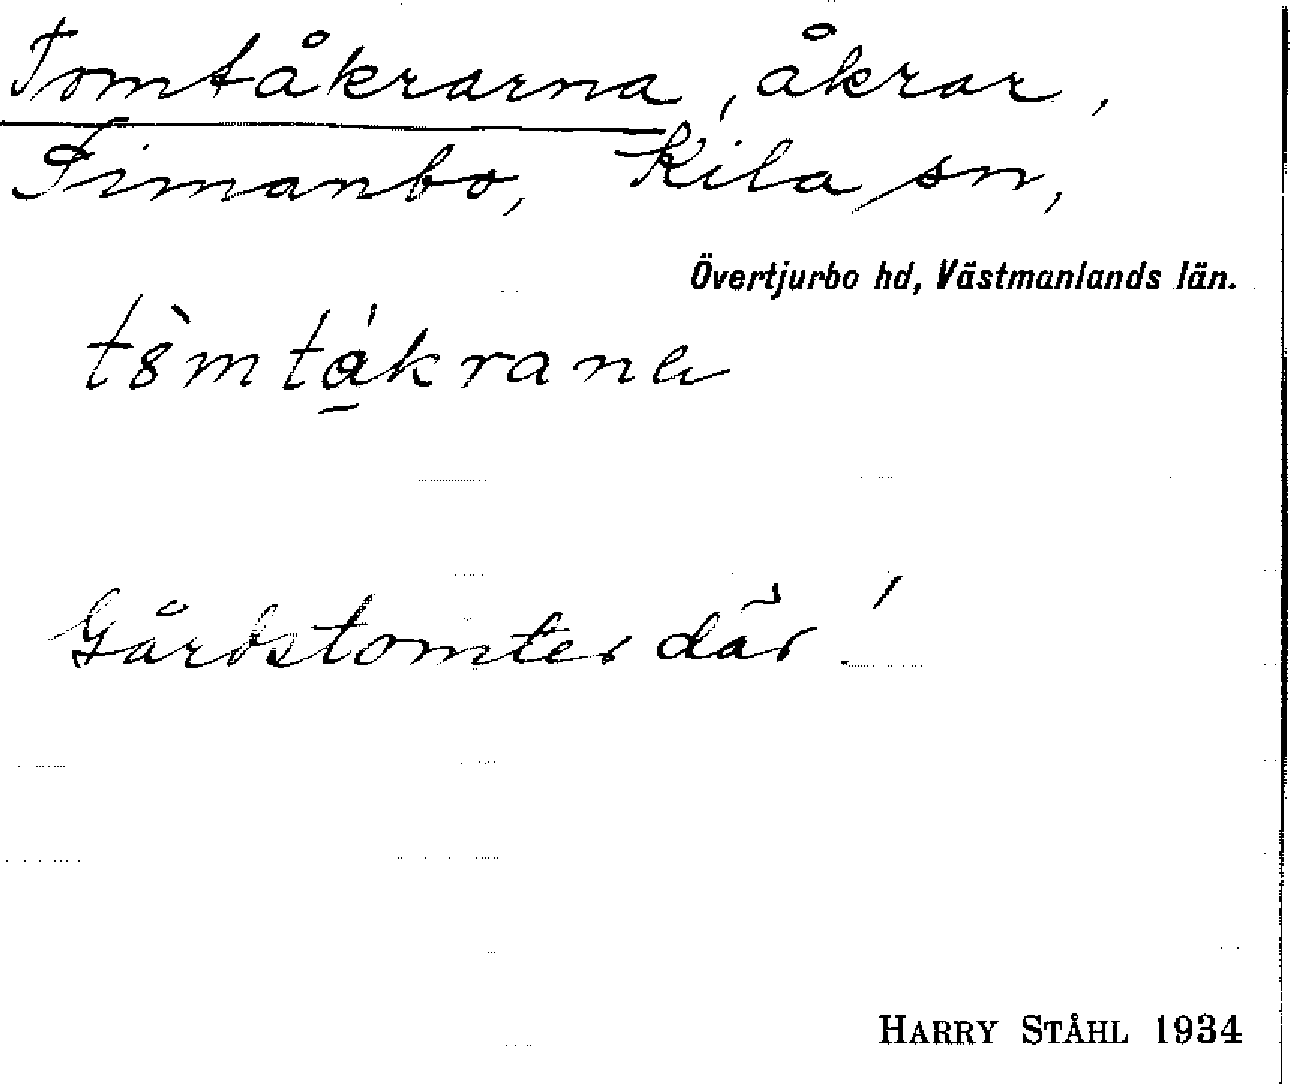 Tomtåkrarna, åkrar,
Timanbo, Kila sn,
Övertjurbo hd, Västmanlands län.
Gårdstomter där!
HARRY STÅHL 1934